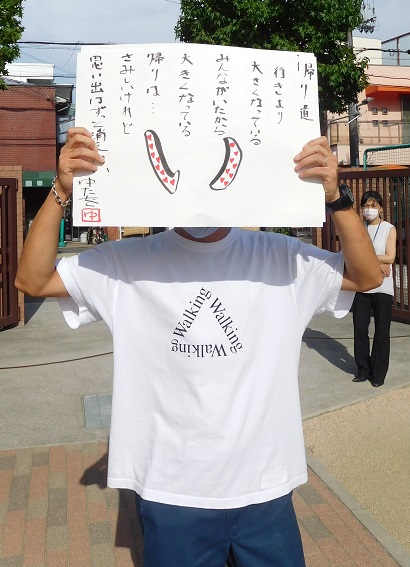 帰り道
行きより
大きくなっている
みんながいたから
大きくなっている
帰りは…
さみしいけれど
思い出はずっと消えない
ゆたか
ゆ
Walking
Walking
Walking